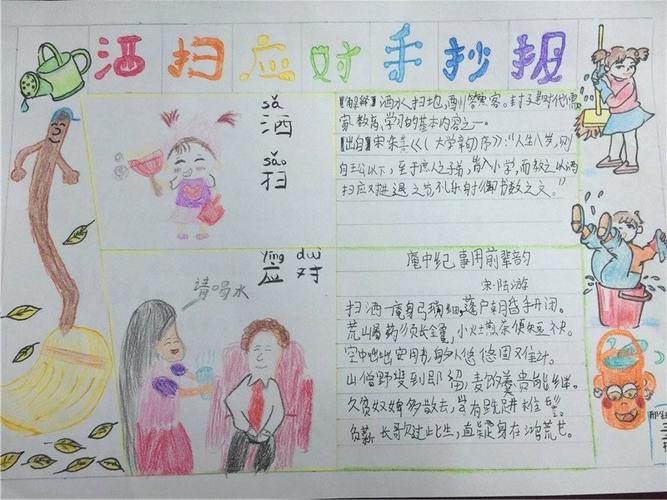 洒扫应对手抄报
sǎ
洒
sǎo
扫
【解释】洒水扫地,酬答宾客。封建时代儒
家教育、学习的基本内容之一。
【出自】宋朱熹《(大学章句序》:"人生八岁,则
自王公以下,至于庶人之子弟,皆入小学,而教之以洒
扫应对进退之节礼乐射御书数之文。"
yīng duì
应对
请喝水
庵中纪事用前辈韵
宋·陆游
扫洒一庵身自琐细,蓬户朝昏手开闭。
荒山药须长,小灶煎茶便短
空中咄咄空用书,悠悠固又佳
山僧野叟到即留,麦饭羹贵能继
久贫奴婢多散去,尚有
负薪长歌过此生,直是身在鸿荒世。